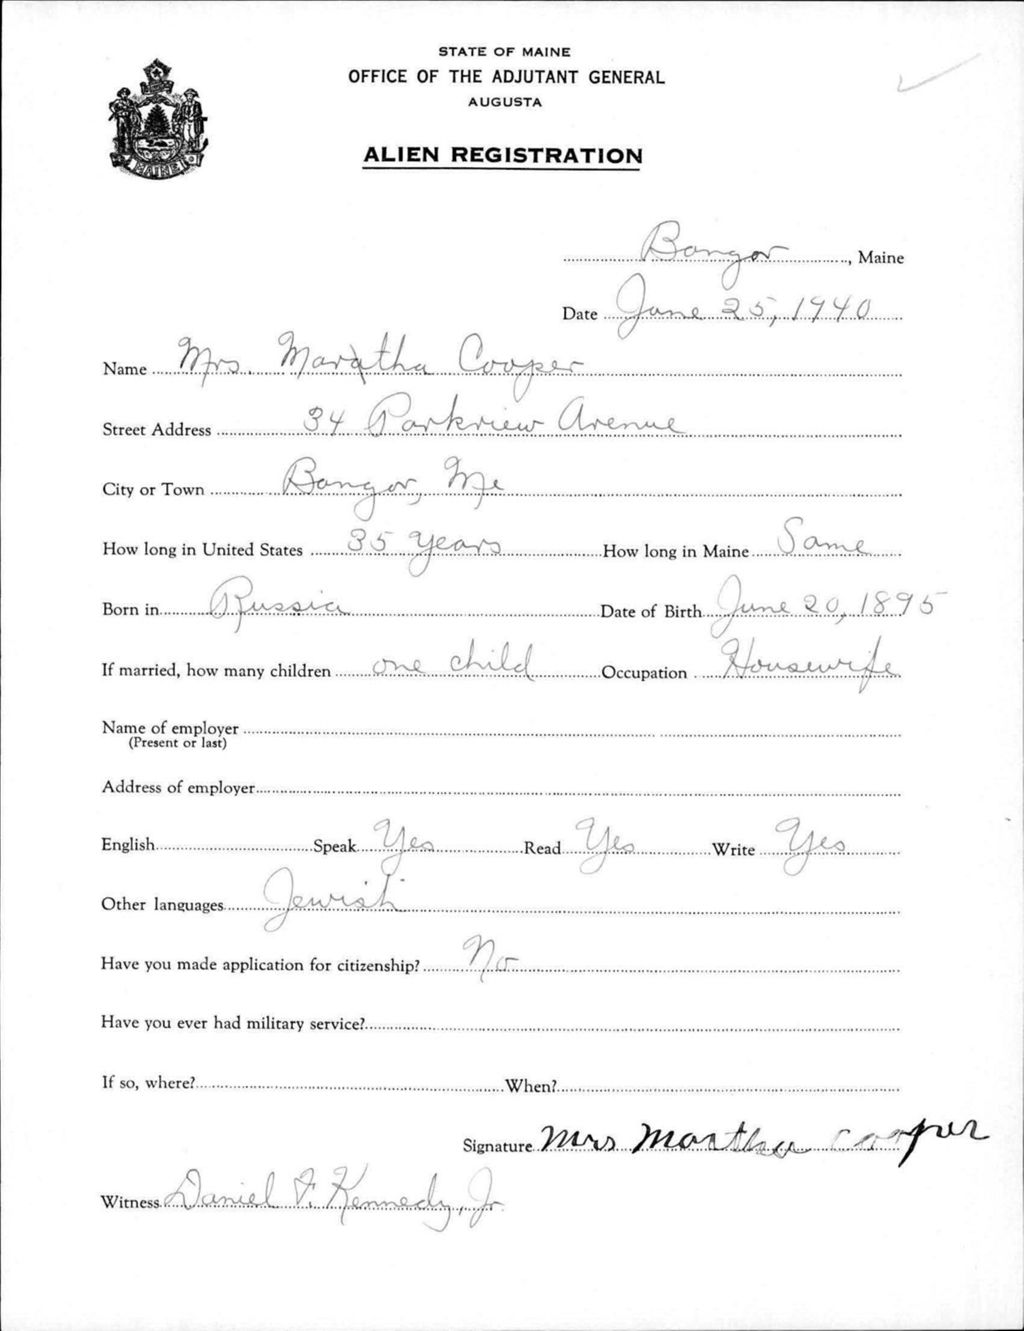 STATE OF MAINE
OFFICE OF THE ADJUTANT GENERAL
AUGUSTA
ALIEN REGISTRATION
MAINE
Bangor, Maine
Date June 25, 1940
Name Mrs. Martha Cooper
Street Address 34 Parkview Avenue
City or Town Bangor, Me
How long in United States 35 Years How long in Maine Same
Born in Russia Date of Birth June 20, 1895
If married, how many children one child Occupation Housewife
Name of employer
(Present or last)
Address of employer
English Speak Yes Read Yes Write Yes
Other languages Jewish
Have you made application for citizenship? No
Have you ever had military service?
If so, where? When?
Signature Mrs Martha Cooper
Witness Daniel F. Kennedy, Jr.